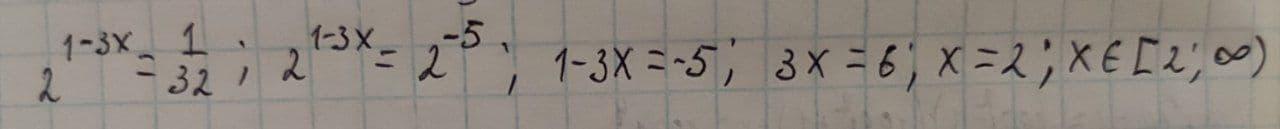 2^{1-3x} = \frac{1}{32}; 2^{1-3x} = 2^{-5}; 1-3x = -5; 3x = 6; x = 2; x ∈ [2; ∞)